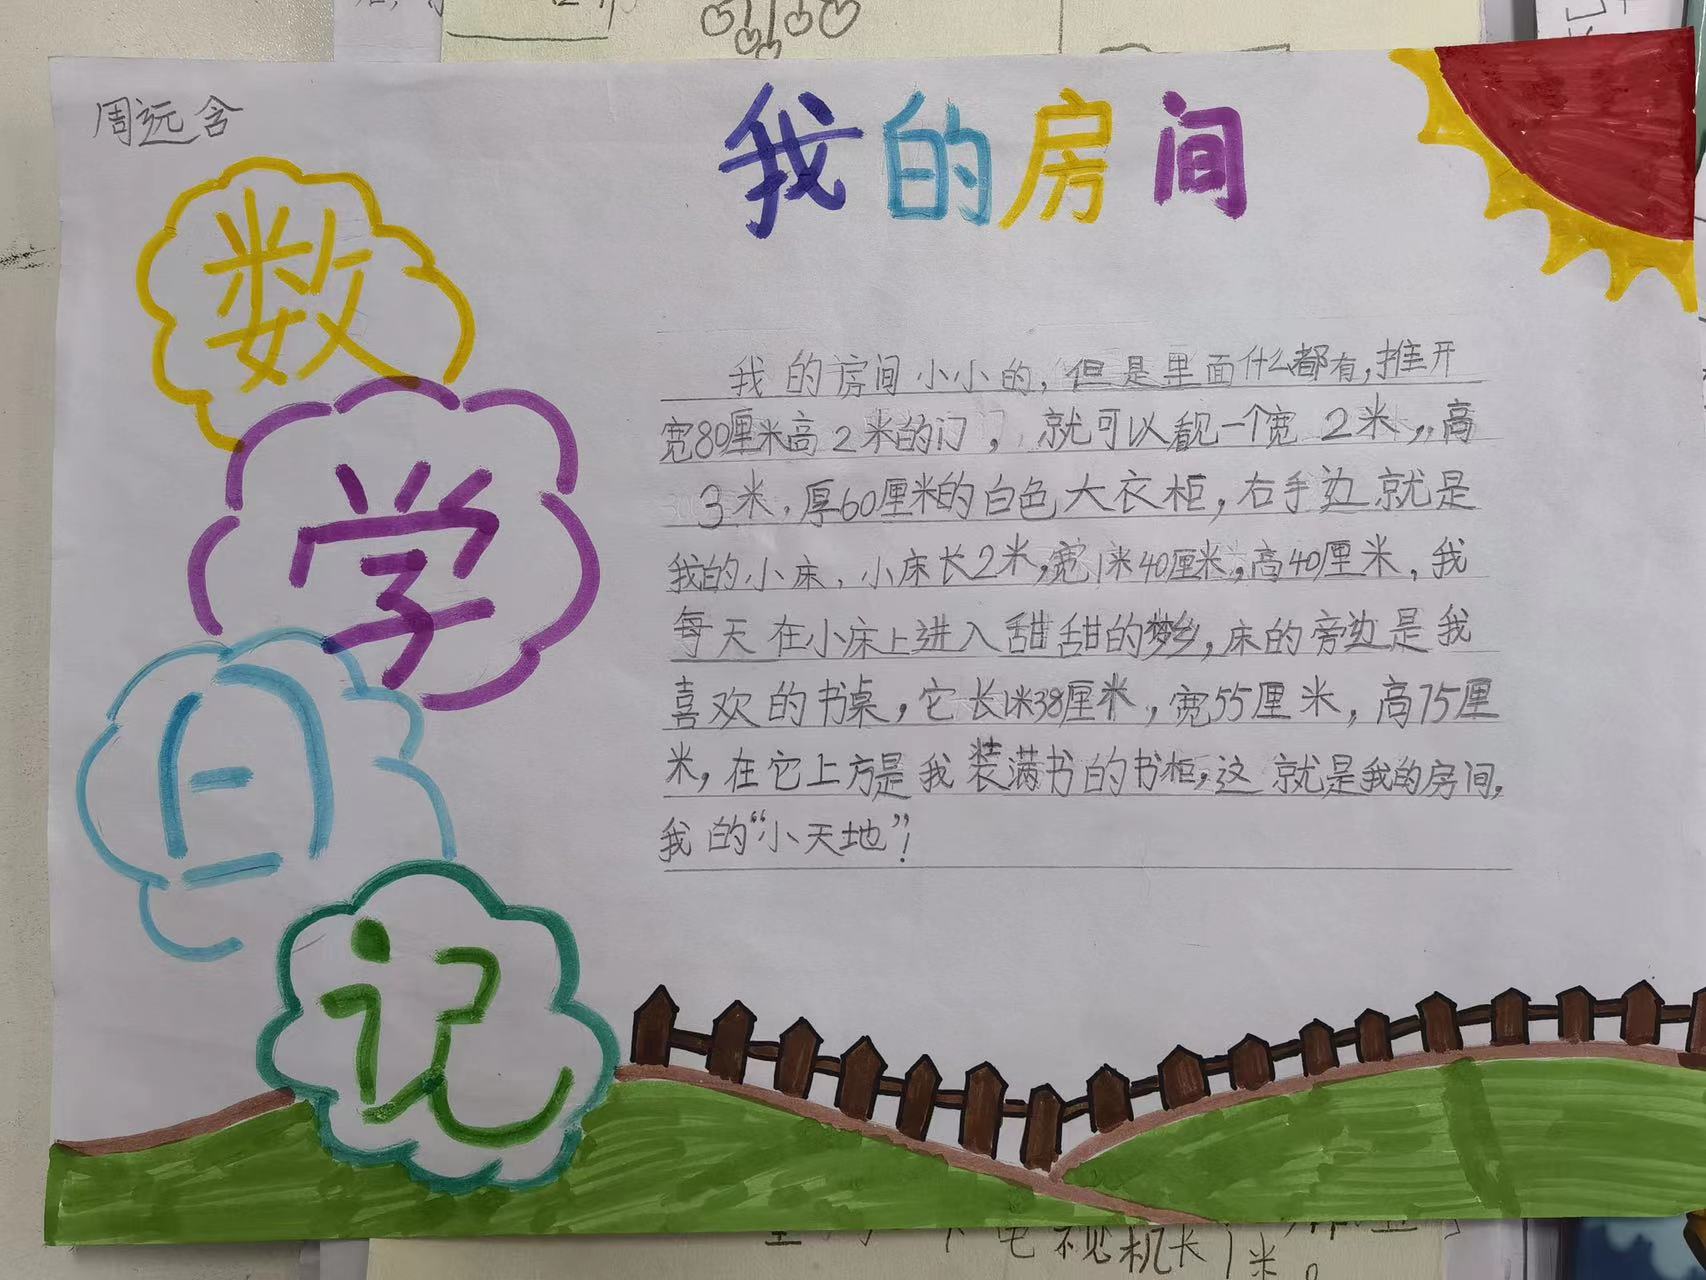 周远含
我的房间
数
学
日
记
我的房间小小的,但是里面什么都有,推开
宽80厘米高2米的门,就可以看见一个宽2米,高
3米,厚60厘米的白色大衣柜,右手边就是
我的小床,小床长2米,宽1米40厘米,高40厘米,我
每天在小床上进入甜甜的梦乡,床的旁边是我
喜欢的书桌,它长1米38厘米,宽55厘米,高75厘
米,在它上方是我装满书的书柜,这就是我的房间,
我的“小天地”!
电视机长1米。